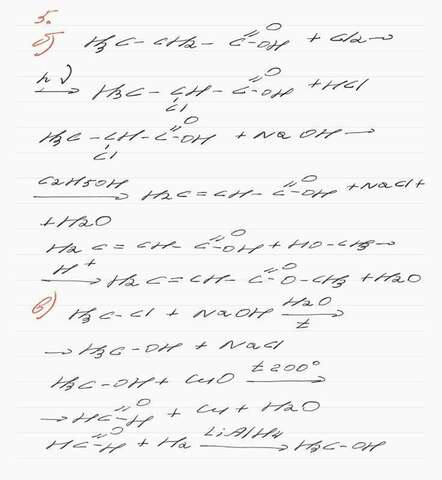 5.
б) H3C – CH2 – C=O–OH + Cl2 →
hν → H3C – CH(Cl) – C=O–OH + HCl
H3C – CH(Cl) – C=O–OH + NaOH →
C2H5OH → H2C = CH – C=O–OH + NaCl +
+ H2O
H2C = CH – C=O–OH + HO – CH3 →
H+ → H2C = CH – C=O–O – CH3 + H2O
в) H3C – Cl + NaOH H2O t →
→ H3C – OH + NaCl
H3C – OH + CuO t 200° →
→ HC=O–H + Cu + H2O
HC=O–H + H2 LiAlH4 → H3C – OH